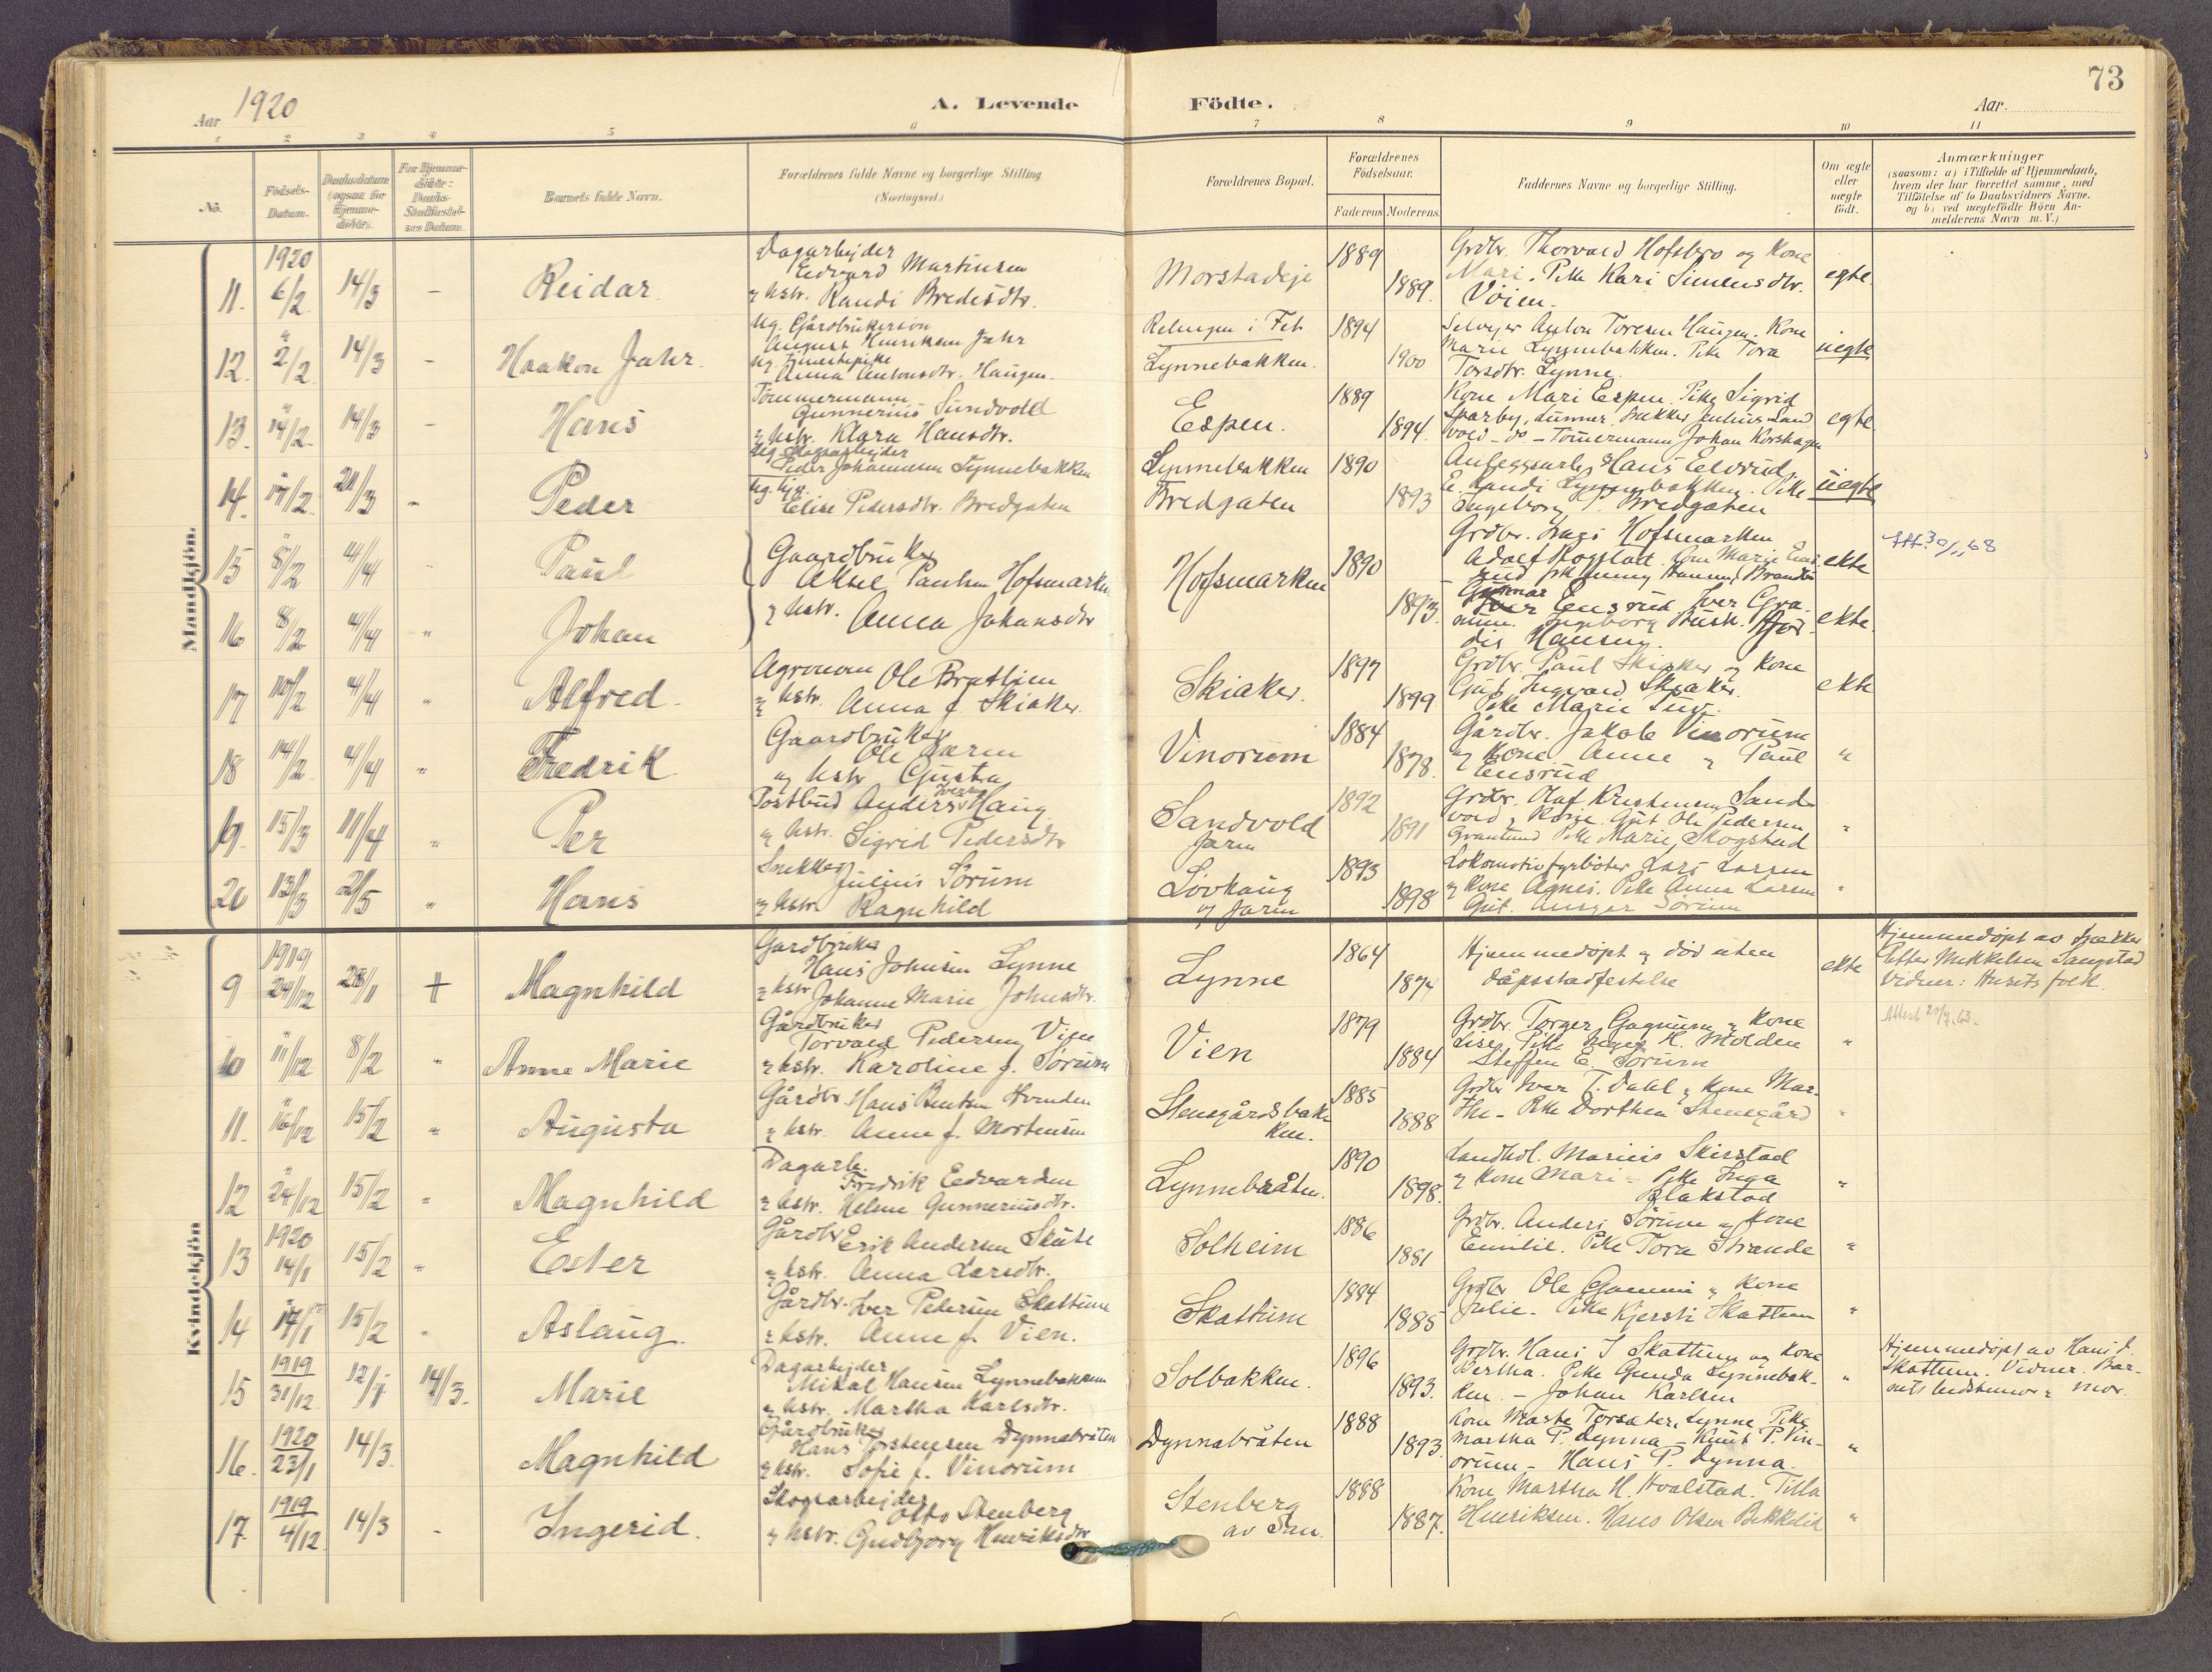 73
Aar 1920
A. Levende
Födte.
Aar.
1 2 3 4 5 6 7 8 9 10 11
No.
Födsels-
Datum.
Daabsdatum
(ogsaa for
Hjemme-
döbte).
For Hjemme-
döbte:
Daabs-
Stadfæstel-
ses Datum.
Barnets fulde Navn.
Forældrenes fulde Navne og borgerlige Stilling
(Næringsvei.)
Forældrenes Bopæl.
Forældrenes
Födselsaar.
Faderens Moderens.
Faddernes Navne og borgerlige Stilling.
Om ægte
eller
uægte
födt.
Anmærkninger
(saasom: a) i Tilfælde af Hjemmedaab,
hvem der har forrettet samme, med
Tilföielse af to Daabsvidners Navne.
og b) ved uægtefödte Börn An-
melderens Navn m. V.)
Mandkjön.
1920
11. 6/2 14/3 - Reidar
Dagarbejder
Edvard Martinsen
og hstr. Randi Bredesdtr.
Morstadeje
1889
1889.
Grdbr. Thorvald Hofsbro og Kone
Mari. Pike Kari Simensdtr.
Vöien.
egte
12. 2/2 14/3 - Haakon Jahr.
Ug. Gårdbrukersön
August Henriksen Jahr
ug. tjenestepike
Anna Antonsdtr. Haugen.
Lynnebakken.
1894
1900
Selvejer Anton Toresen Haugen. Kone
Marie Lynnebakken. Pike Tora
Torsdtr. Lynne.
uegte
13. 14/2 14/3 - Hans
Tömmermann
Gunnerius Sundvold
og hstr. Klara Hansdtr.
Espen.
1889
1894.
Kone Mari Espen. Pike Sigrid
Sparby, Lunner. Snekker Julius Sand
vold - do - Tömmermann Johan Korshagen
egte
14. 17/2 21/3 - Peder
Peder Johannesen Lynnebakken
Elise Pedersdtr. Bredgaten
Lynnebakken
Bredgaten
1890
1893
Anleggsarb. Hans Eldrud
E. Randi Lynnebakken. Pike
Ingeborg P. Bredgaten
uegte
15 8/2 4/4 Paul
16 8/2 4/4 " Johan
Gaardbruker
Aksel Paulsen Hofsmarken
og hstr. Anna Johansdtr
Hofsmarken
1890
1893.
Grdbr. Hofsmarken
Gunnar
Ensrud. Iver Gra-
num. Ingeborg
dis Hansen.
ekte
ekte.
17 10/2 4/4 " Alfred.
Agronom Ole Bratlien
og hstr. Anna f. Skiaker.
Skiaker.
1897
1899
Grdbr. Paul Skiaker og Kone
Gut Ingvald Skiaker.
Pike Marie
ekte
18 14/2 4/4 " Fredrik
Gaardbruker
Ole
og hstr Gusta
Vinorum
1884
1878.
Gårdbr. Jakob Vinorum
og Kone Anne og Paul
Ensrud
"
19. 15/3 11/4 " Per
Postbud Anders Iversen Haug
og hstr. Sigrid Pedersdtr
Sandvold
Jaren
1892
1891
Grdbr. Olaf Kristensen Sand
vold og Kone. Gut Ole Pedersen
Granlund Pike Marie Skogstad
"
20 13/3 2/5 " Hans
Snekker
Julius Sörum
og hstr Ragnhild
Lövhaug
og Jaren
1893
1898
Lokomotivfyrböter Lars Larsen
og Kone Agnes. Pike Anna Larsen
Gut. Ansgar Sörum
"
Kvindekjön
1919
9 24/12 28/1 + Magnhild
Gardbruker
Hans Johnsen Lynne
og hstr Johanne Marie Johnsdtr.
Lynne
1864
1874
Hjemmedöpt og död uten
dåpsstadfestelse
ekte
Hjemmedöpt av Snekker
Petter Mikkelsen Sangstad
Vidner: Husets folk.
10 11/12 8/2 " Anne Marie
Gårdbruker
Torvald Pedersen Vien
og hstr. Karoline f. Sörum
Vien
1879
1884
Grdbr. Torger Gagnum og Kone
Lise. Pike Inger H. Molden
Steffen E. Sörum
"
11. 16/12 15/2 " Augusta
Gårdbr. Hans Bentsen Hvinden
og hstr. Anne f. Mortensen
Stensgårdsbak-
ken.
1885
1888
Grdbr Iver T. Dahl og Kone Mar-
the - Pike Dorthea Stensgård
"
12 24/12 15/2 " Magnhild
Dagarb.
Fredrik Edvardsen
og hstr. Helene Gunneriusdtr.
Lynnebråten.
1890
1898.
Landhdl. Marius Skirstad
og Kone Mari - Pike Inga
Blakstad
"
1920
13 14/1 15/2 " Ester
Gårdbr Erik Andersen Skute
og hstr. Anna Larsdtr.
Solheim
1886
1881
Grdbr. Anders Sörum og Kone
Emilie. Pike Tora Strande
"
14 17/1 15/2 " Aslaug.
Gårdbr. Iver Petersen Skattum
og hstr. Anne f. Vien.
Skattum
1884
1885
Grdbr Ole Gamme og Kone
Julie - Pike Kjersti Skattum
"
1919
15 31/12 12/1 14/3. Marie
Dagarbejder
Mikal Hansen Lynnebakken
og hstr. Martha Karlsdtr.
Solbakken.
1896
1893.
Grdbr. Hans I Skattum og Kone
Bertha. Pike Gunda Lynnebak-
ken. - Johan Karlsen
"
Hjemmedöpt av Hans I.
Skattum. Vidner. Bar-
nets bedstemor og mor.
1920
16. 23/1 14/3. Magnhild
Gårdbruker
Hans Torstensen Dynnabråten
og hstr. Sofie f. Vinorum
Dynnabråten
1888
1893
Kone Marte Torsdtr. Lynne Pike
Martha P. Dynna - Knut P. Vin-
orum - Hans P. Dynna.
"
1919
17. 4/12 14/3 - Ingerid.
Skogsarbejder
Otto Stenberg
og hstr. Gudbjörg Henriksdtr
Stenberg
av San.
1888
1887.
Kone Martha H. Hvalstad. Tilla
Henriksen. Hans Olsen Bekkelid
"